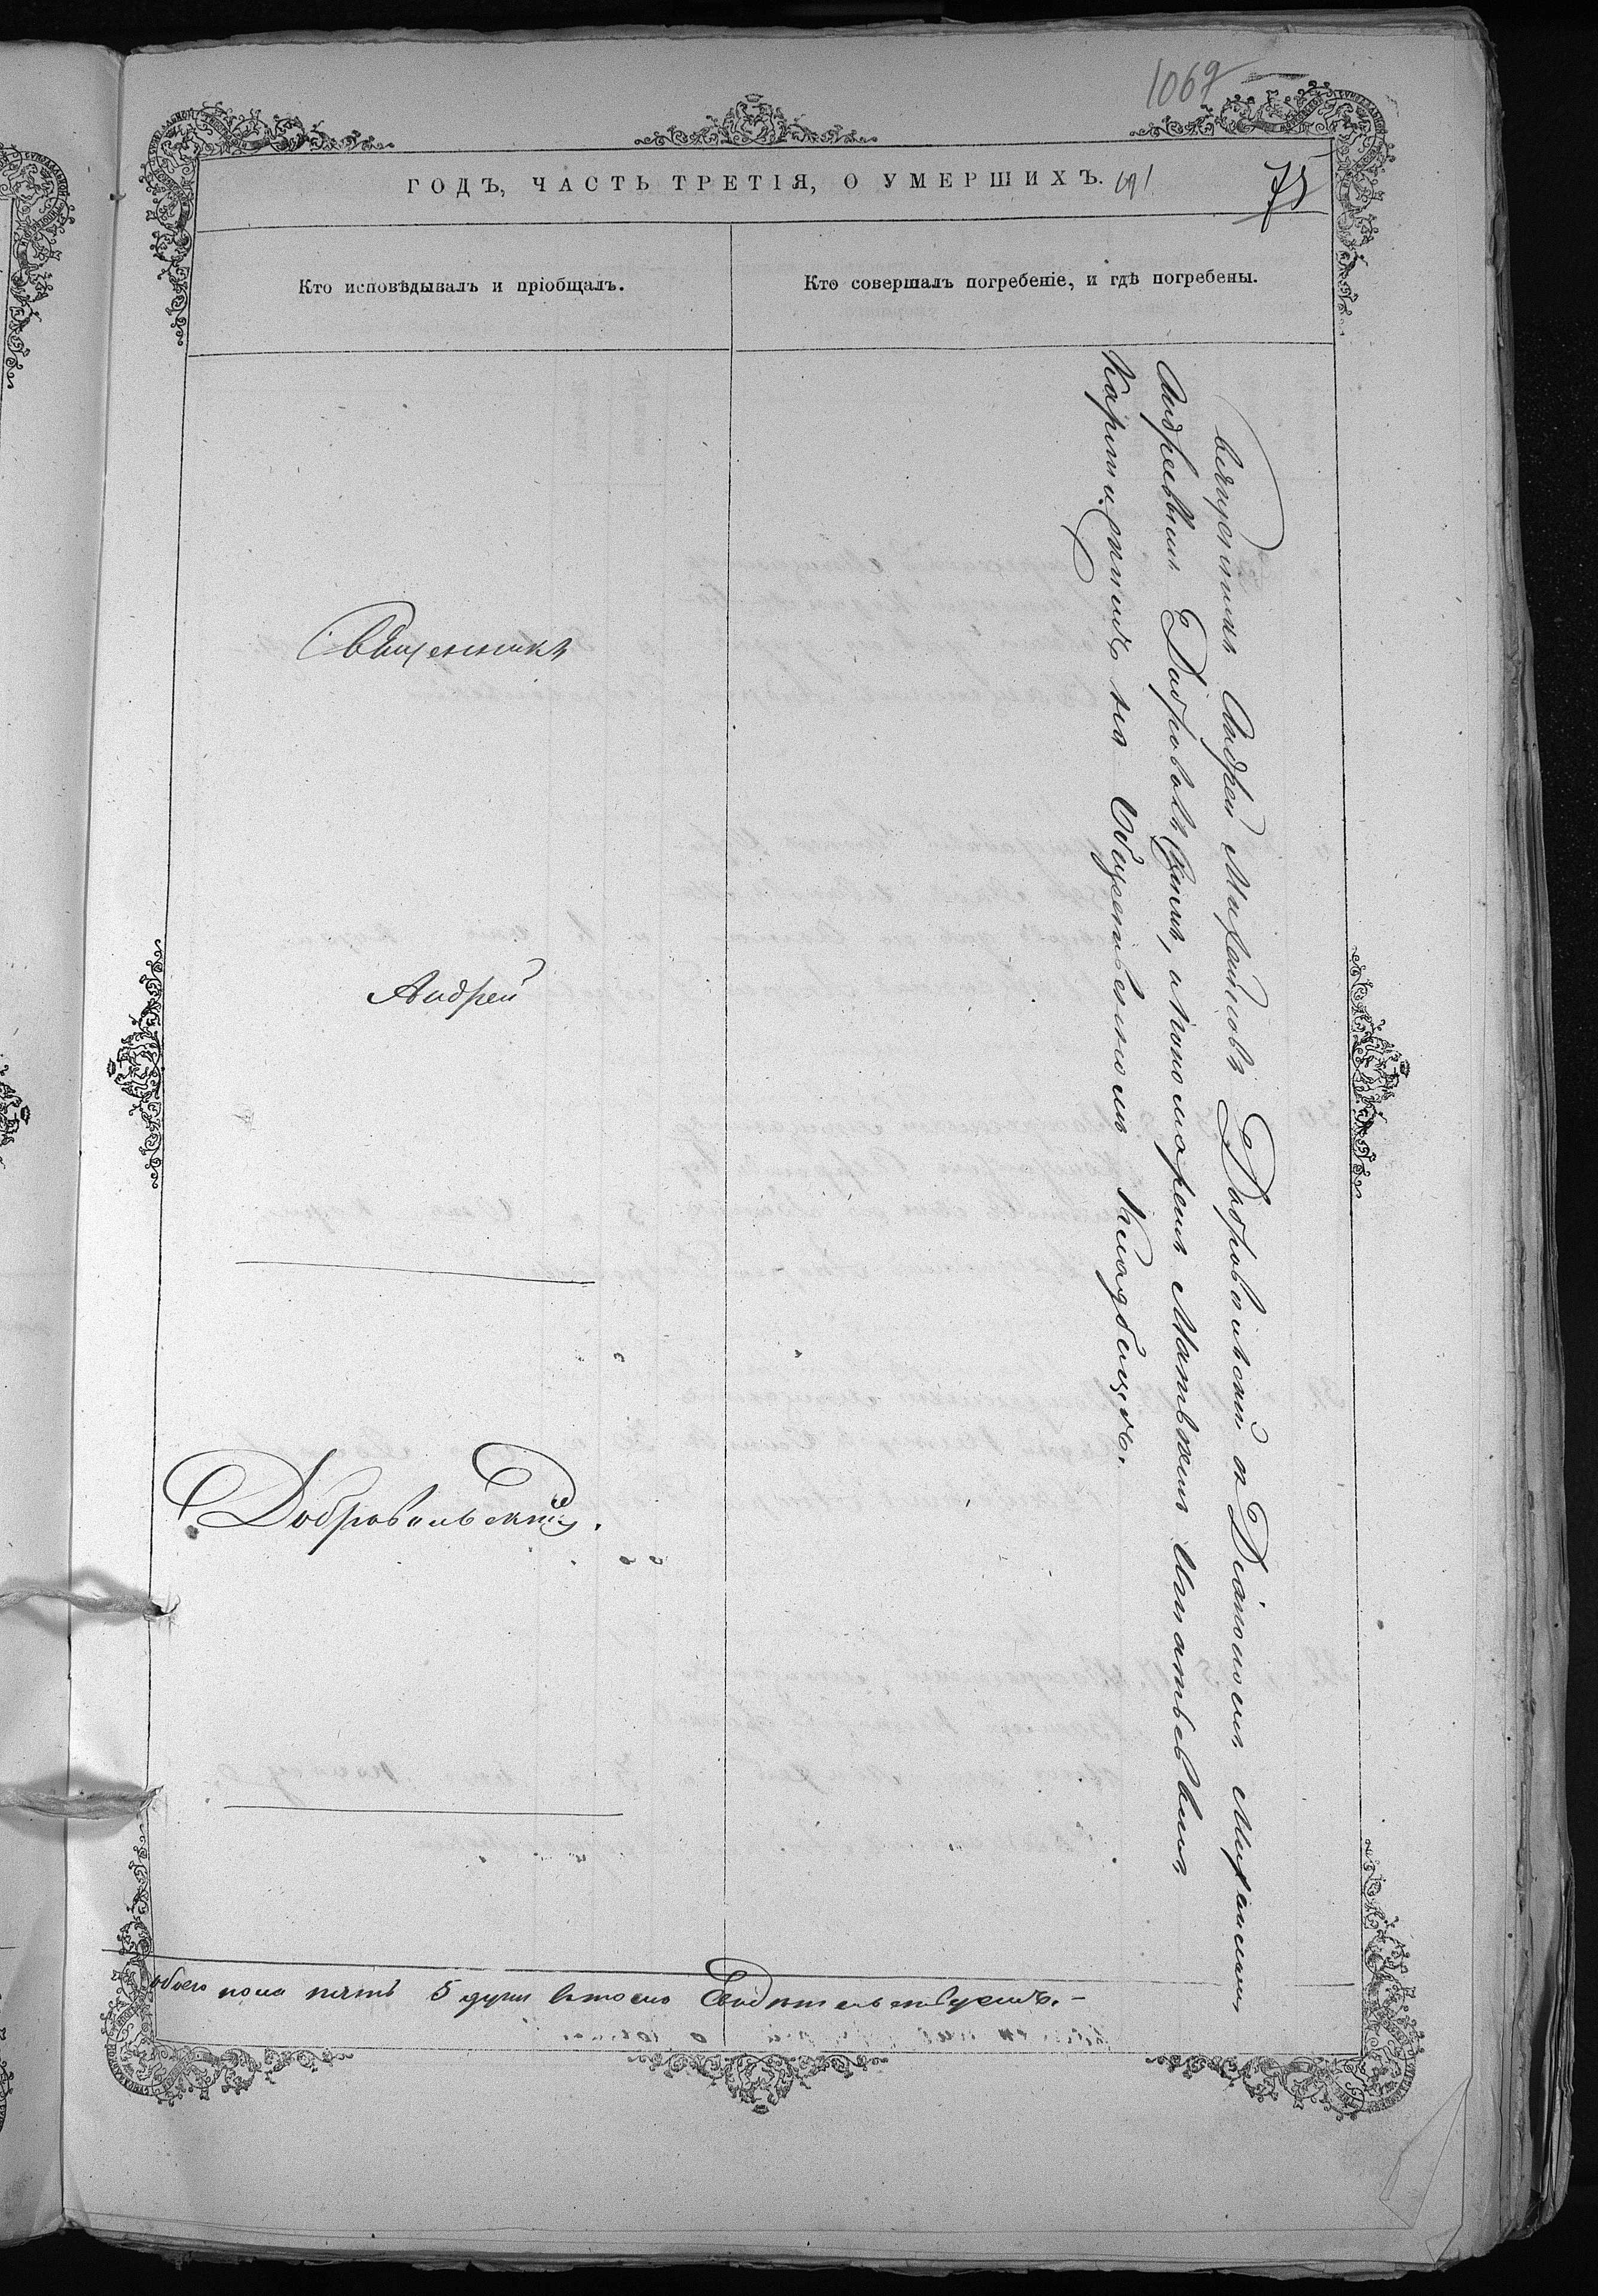 1069
ГОДЪ, ЧАСТЬ ТРЕТІЯ, О УМЕРШИХЪ.
75
Кто исповѣдывалъ и пріобщалъ.
Кто совершалъ погребеніе, и гдѣ погребены.
Священникъ
Андрей
Добровольскій.
Священникъ Андрей Михайловъ Добровольскій съ Діакономъ Михаиломъ
Андреевымъ Добровольскимъ, и Пономаремъ Матвѣемъ Игнатьевымъ
на Общественномъ Кладбищѣ.
обоего пола пять 5 душъ въ томъ Свидѣтельствуемъ.-